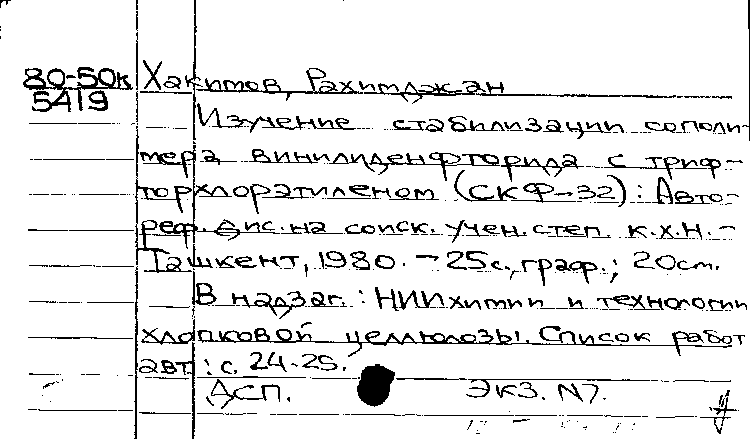 80-50к Хакимов, Рахимджан
5419
Изучение стабилизации сополи-
мера винилиденфторида с триф-
торхлорэтиленом (СКФ-32): Авто-
реф. дис. на соиск. учен. степ. к.х.н. -
Ташкент, 1980. - 25с., граф.; 20см.
В надзаг.: НИИхимии и технологии
хлопковой целлюлозы. Список работ
авт.: с. 24-25.
ДСП. Экз. N7.